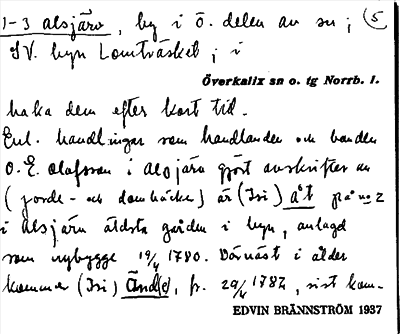 1-3 alsjärv, by i ö. delen av sn; (5
SV. byn Lomträsket; i
Överkalix sn o. tg Norrb. l.
baka dem efter kort tid.
Enl. handlingar som handlanden och bonden
O. E. Olofsson i Alsjärv gjort avskrifter av
(jorde- och domböcker) är (Isi) åt på no 2
i Alsjärv äldsta gården i byn, anlagd
som nybygge 19/4 1780. Därnäst i ålder
kommer (Isi) Änd(e), fr. 29/4 1782, sist kom-
EDVIN BRÄNNSTRÖM 1937